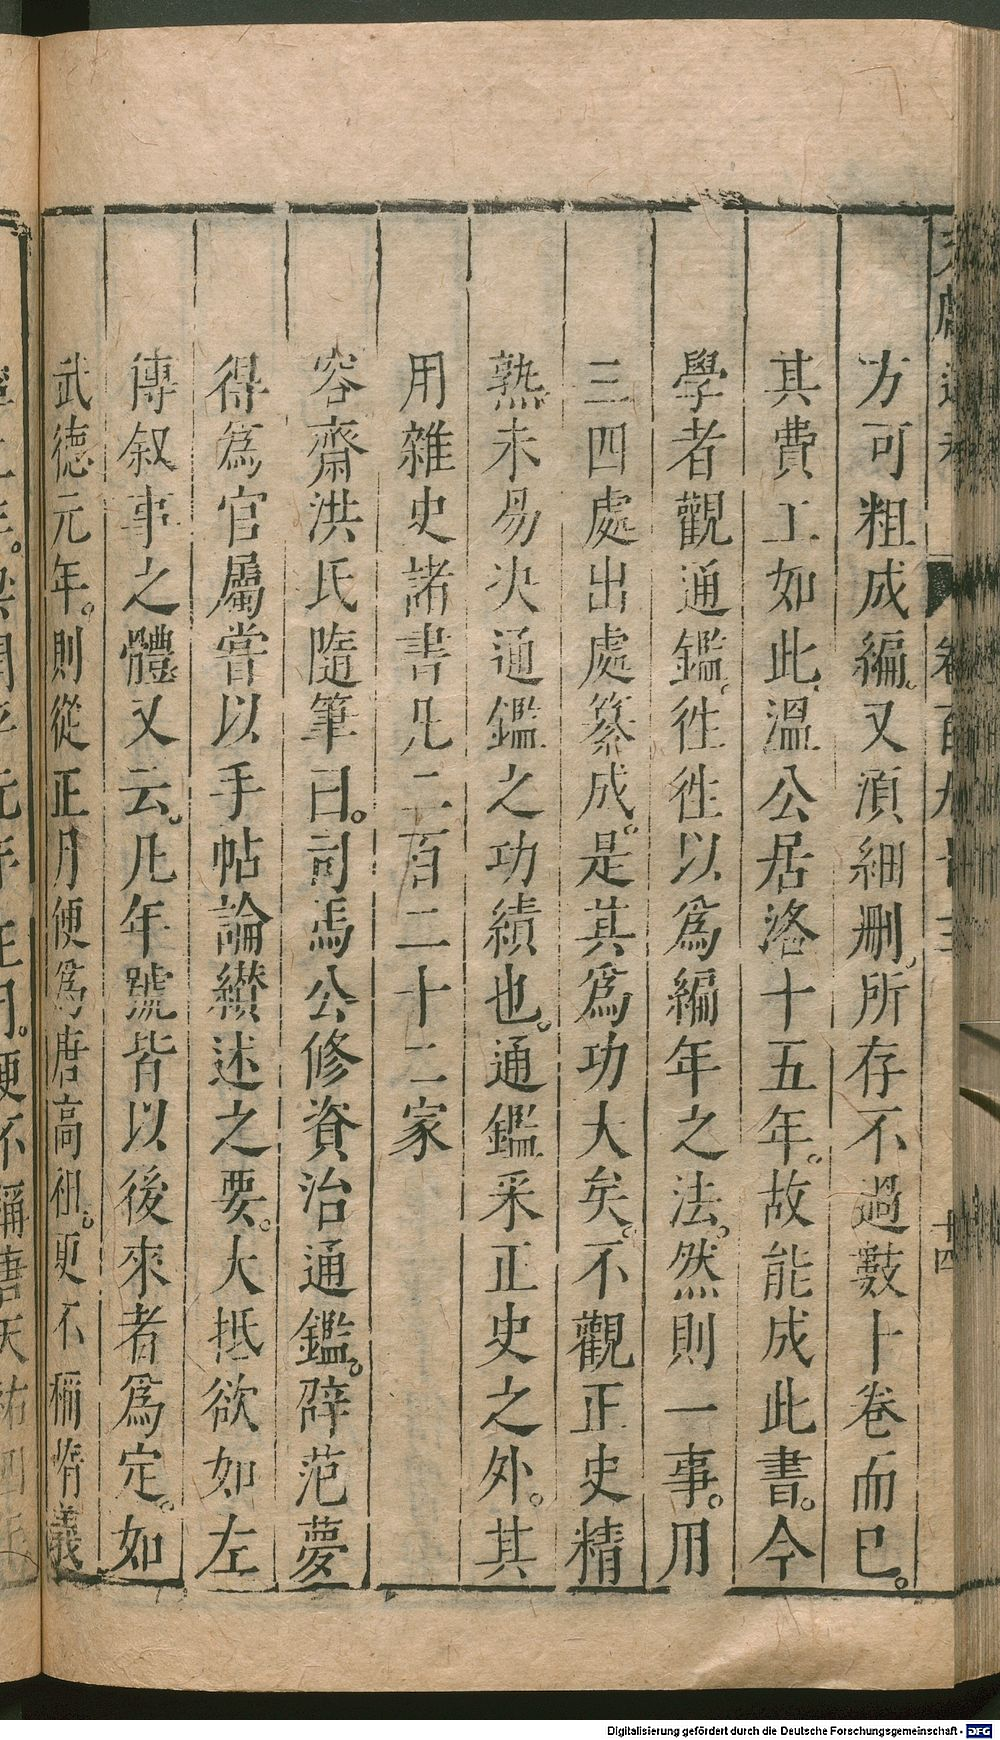 方可粗成編又須細刪所存不過數十卷而已
其費工如此溫公居洛十五年故能成此書今
學者觀通鑑徃徃以為編年之法然則一事用
三四處出處纂成是其為功大矣不觀正史精
熟未易决通鑑之功績也通鑑采正史之外其
用雜史諸書凡二百二十二家
容齋洪氏隨筆曰司馬公修資治通鑑辟范夢
得為官屬嘗以手帖論纉述之要大抵欲如左
傳叙事之體又云凡年號皆以後來者為定如
武德元年則從正月便為唐高祖更不稱隋義
Digitalisierung gefördert durch die Deutsche Forschungsgemeinschaft - DFG